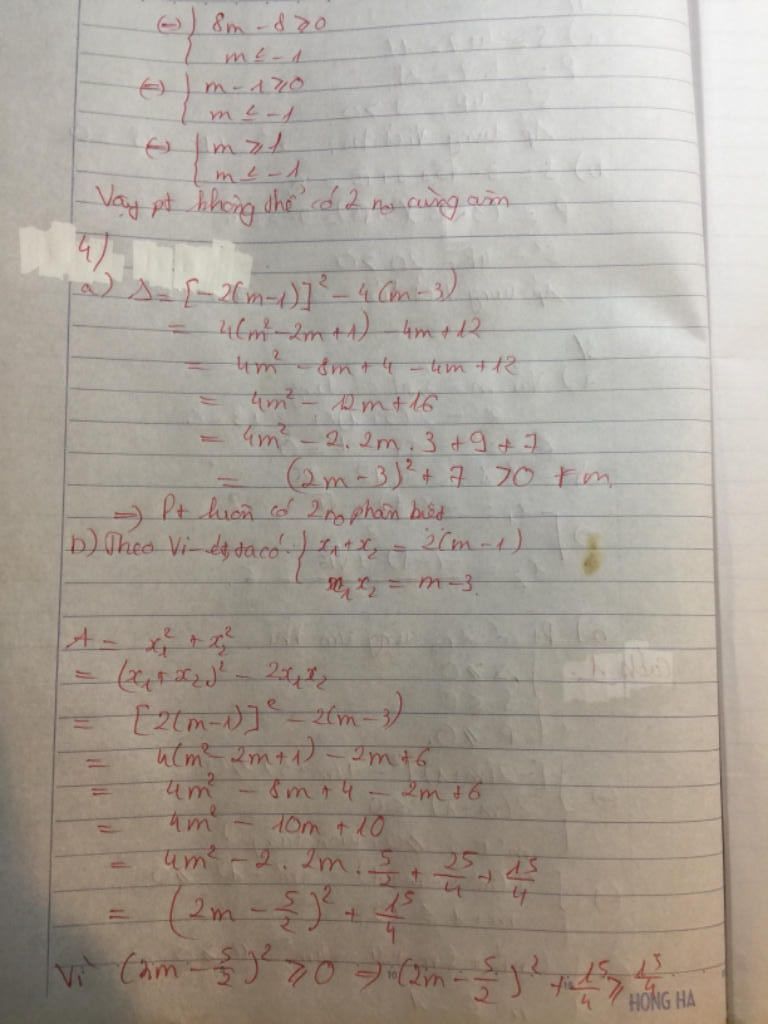 (=) { 8m - 8 ≥ 0
m ≤ -1
(=) { m - 1 ≥ 0
m ≤ -1
(=) { m ≥ 1
m ≤ -1
Vậy pt không thể có 2 no cùng âm
4)
a) Δ = [-2(m-1)]² - 4(m-3)
= 4(m² - 2m + 1) - 4m + 12
= 4m² - 8m + 4 - 4m + 12
= 4m² - 12m + 16
= 4m² - 2. 2m . 3 + 9 + 7
= (2m - 3)² + 7 > 0 ∀ m
=> Pt luôn có 2 no phân biệt
b) Theo Vi-ét, ta có: { x₁ + x₂ = 2(m - 1)
x₁x₂ = m - 3.
A = x₁² + x₂²
= (x₁ + x₂)² - 2x₁x₂
= [2(m-1)]² - 2(m-3)
= 4(m² - 2m + 1) - 2m + 6
= 4m² - 8m + 4 - 2m + 6
= 4m² - 10m + 10
= 4m² - 2 . 2m . 5/2 + 25/4 + 15/4
= (2m - 5/2)² + 15/4
Vì (2m - 5/2)² ≥ 0 => (2m - 5/2)² + 15/4 ≥ 15/4
HONG HA